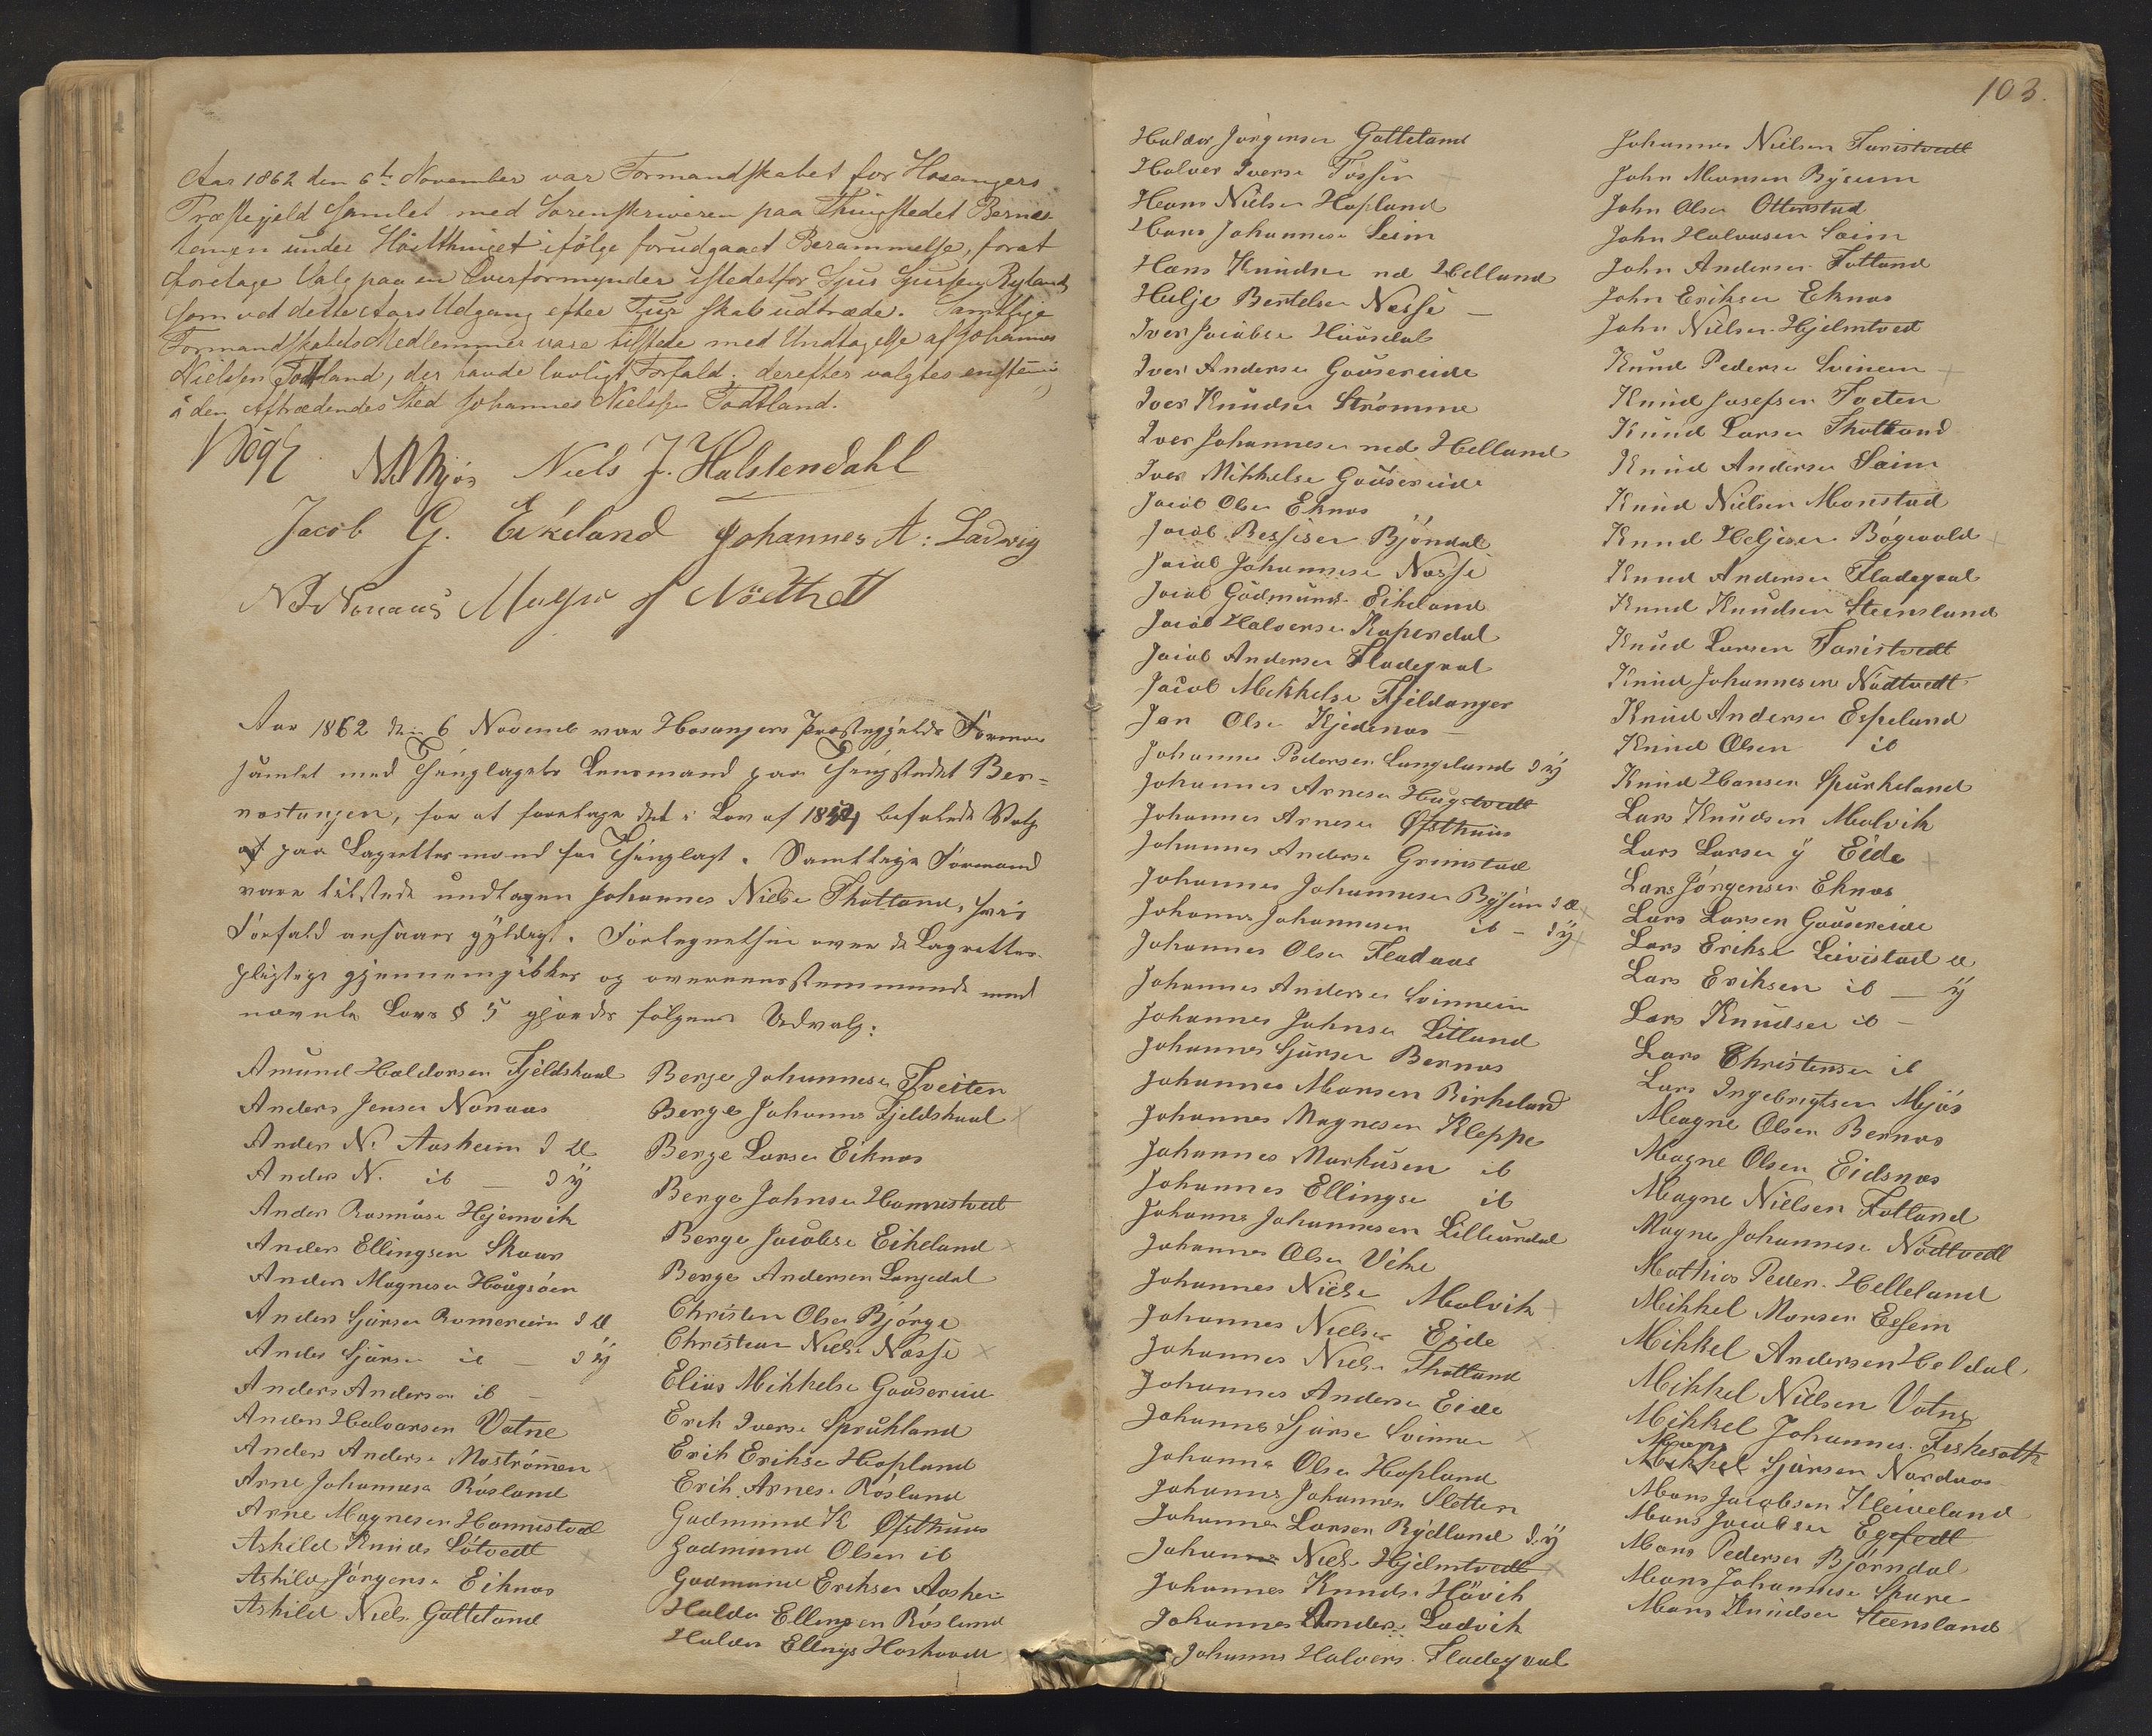 Aar 1862 den 6te November var Formandskabet for Hosangers
Præstegjeld samlet med Sorenskriveren paa Thingstedet Bernæs
tangen under Høstthinget ifölge forudgaaet Berammelse, forat
foretage Valg paa en Overformynder istedetfor Sjur Sjursen Ryland
som ved dette Aars Udgang efter Tur skal udtræde. Samtlige
Formandskabets Medlemmer vare tilstede med Undtagelse af Johannes
Nielsen Todtland, der havde lovligt Forfald. derefter valgtes enstem
i den Aftrædendes Sted Johannes Nielsen Todtland.
N Mjös Niels J. Halstendahl
Jacob G. Eikeland Johannes A: Ladvig
Nonaas Magne Nödtvedt
Aar 1862 den 6 Novemb var Hosangers Præstegjelds Forman
samlet med Thinglagets Lensmand paa Thingstedet Ber=
nestangen, for at foretage det i Lov af 1854 befalede Valg
af paa Lagrettesmænd for Thinglaget. Samtlige Formænd
vare tilstede undtagen Johannes Niels Thotland, hvis
Forfald ansaaes gyldigt. Fortegnelsen over de Lagrettes
pligtige gjennemgikkes og overeensstemmende med
nævnte Lovs § 5 gjordes følgende Udvalg:
Amund Haldorsen Fjeldskaal
Anders Jensen Nonaas
Anders N. Aasheim d Æ
Anders N. ib — d ÿ
Anders Rasmuse Hjemvik
Anders Ellingsen Skaar
Anders Magnesen Hougsöen
Anders Sjursen Romereim d Æ
Anders Sjursen ib — d ÿ
Anders Andersen ib —
Anders Halvorsen Vatne
Anders Anders Moströmmen
Arne Johannesen Rösland
Arne Magnesen Hannestvedt
Askild Knuds Lötvedt
Askild Jörgense Eiknæs
Askild Niels Gatteland
Berge Johannesen Tveiten
Berge Johanne Fjeldskaal
Berge Larsen Eiknæs
Berge Johnsen Hannestvedt
Berge Jacobse Eikeland
Berge Andersen Langedal
Christen Olsen Bjørge
Christian Niels Nesse
Elias Mikkelse Gaasereide
Erik Iverse Spurkland
Erik Erikse Hopland
Erik Arnese Rösland
Gudmund K Ofsthuus
Gudmund Olsen ib
Gudmund Eriksen Aashei
Haldor Ellingsen Rösland
Haldor Ellings
103.
Haldor Jörgensen Gatteland
Halvor Iversen Fossen
Hans Nielsen Hopland
Hans Johannesen Seim
Hans Knudsen nd Helland
Helje Bertelsen Nesse —
Iver Jacobse Haasdal
Iver Andersen Gaasereide
Iver Knudsen Strömme
Iver Johannesen ned Helland
Iver Mikkelse Gaasereide
Jacob Olsen Eknæs
Jacob Bessesen Björndal
Jacob Johannesen Nesse
Jacob Gudmunds Eikeland
Jacob Halvorse Kaperdal
Jacob Andersen Fladegaal
Jacob Mekkelse Fjeldanger
Jan Olsn Kjedenæs —
Johannes Pedersen Langeland d ÿ
Johannes Arnesen Hagetvedt
Johannes Arnesen Ofsthuus
Johannes Anderse Grimstad
Johannes Johannesen Bysem d æ
Johannes Johannesen ib — d ÿ
Johannes Olsen Fladaas
Johannes Andersen Svinnem
Johannes Johnsen Litland
Johannes Sjursen Bernæs
Johannes Monsen Birkeland
Johannes Magnesen Kleppe
Johannes Markusen ib
Johannes Ellingse ib
Johannes Johannesen Lilleurdal
Johannes Olsen Vike
Johannes Nielse Molvik
Johannes Nielsen Eide
Johannes Niels Thotland
Johannes Andersen Eide
Johannes Sjurse Svinnem
Johannes Olsen Hopland
Johannes Johannesen Sletten
Johannes Larsen Rydland d. ÿ
Johannes Niels Hjelmtvedt
Johannes Knudse Hövik
Johannes Anders Ladvik
Johannes Halvors. Fladegaal
Johannes Nielsen Faristvedt
John Monsen Bysem
John Olsen Otterstad
John Halvorsen Seim
John Andersen Fotland
John Eriksen Eknæs
John Nielsen Hjelmtved
Knud Pedersen Svinem
Knud Josefsen Toften
Knud Larsen Thotland
Knud Andersen Seim
Knud Nielsen Monstad
Knud Heljesen Bögevold
Knud Andersen Fladegaal
Knud Knudsen Steensland
Knud Larsen Faristvedt
Knud Johannesen Nödtvedt
Knud Andersen Espeland
Knud Olsen ib
Knud Hansen Spurkeland
Lars Knudsen Molvik
Lars Larsen ÿ Eide
Lars Jörgensen Eknæs
Lars Larsen Gaasereide
Lars Erikse Leivestad æ
Lars Eriksen ib — ÿ
Lars Knudsen ib —
Lars Christensen ib
Lars Ingebrigtsen Mjös
Magne Olsen Bernæs
Magne Olsen Eidsnæs
Magne Nielsen Fotland
Magne Johannese Nödtvedt
Mathias Peder. Helleland
Mikkel Monsen Essem
Mikkel Andersen Heldal
Mikkel Nielsen Vatne
Mikkel Johannes. Feskesæth
Mons
Mekkel Sjursen Nordaas
Mons Jacobsen Kleiveland
Mons Jacobsen Egefedt
Mons Pedersen Björndal
Mons Johannese Spure
Mons Knudsen Steensland